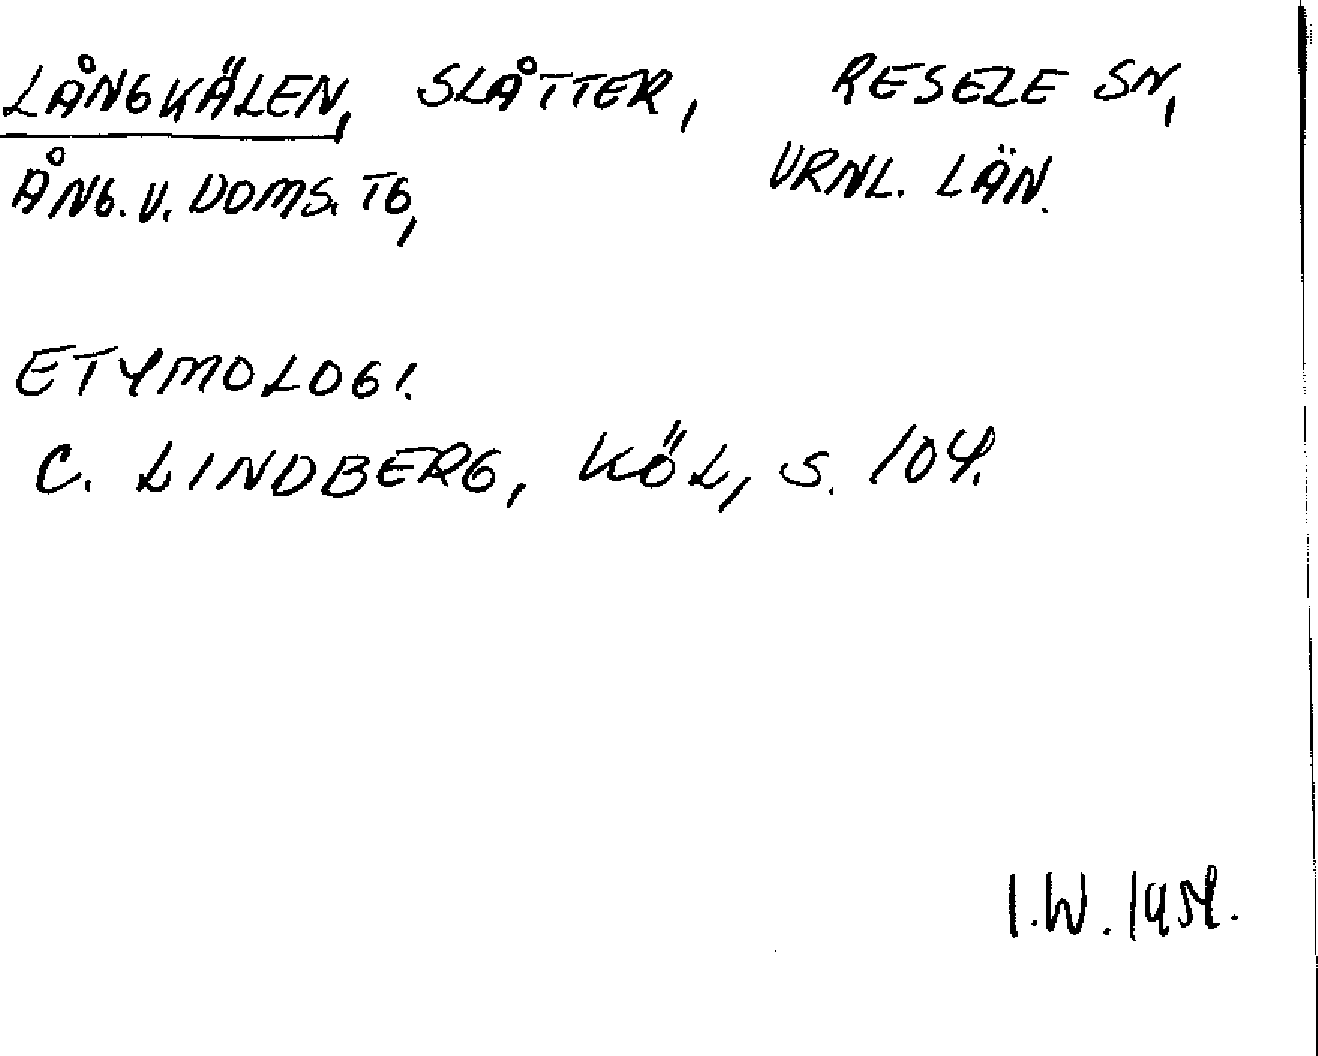 LÅNGKÄLEN, SLÅTTER, RESELE SN,
ÅNG. V. DOMS. TG, VRNL. LÄN.
ETYMOLOGI.
C. LINDBERG, KÖL, S. 104.
I.W. 1954.